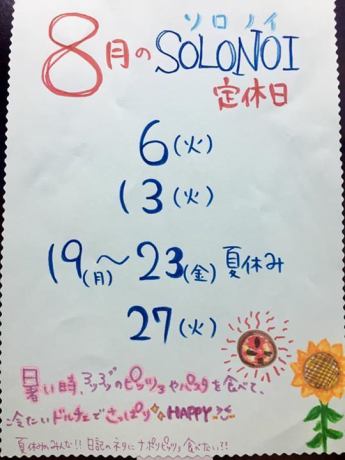 ソロノイ
8月のSOLONOI
定休日
6(火)
13(火)
19(月)〜23(金)夏休み
27(火)
暑い時、アツアツのピッツァやパスタを食べて、
冷たいドルチェでさっぱりHAPPY
夏休みみんな!!日記のネタにナポリピッツァ食べたい!!